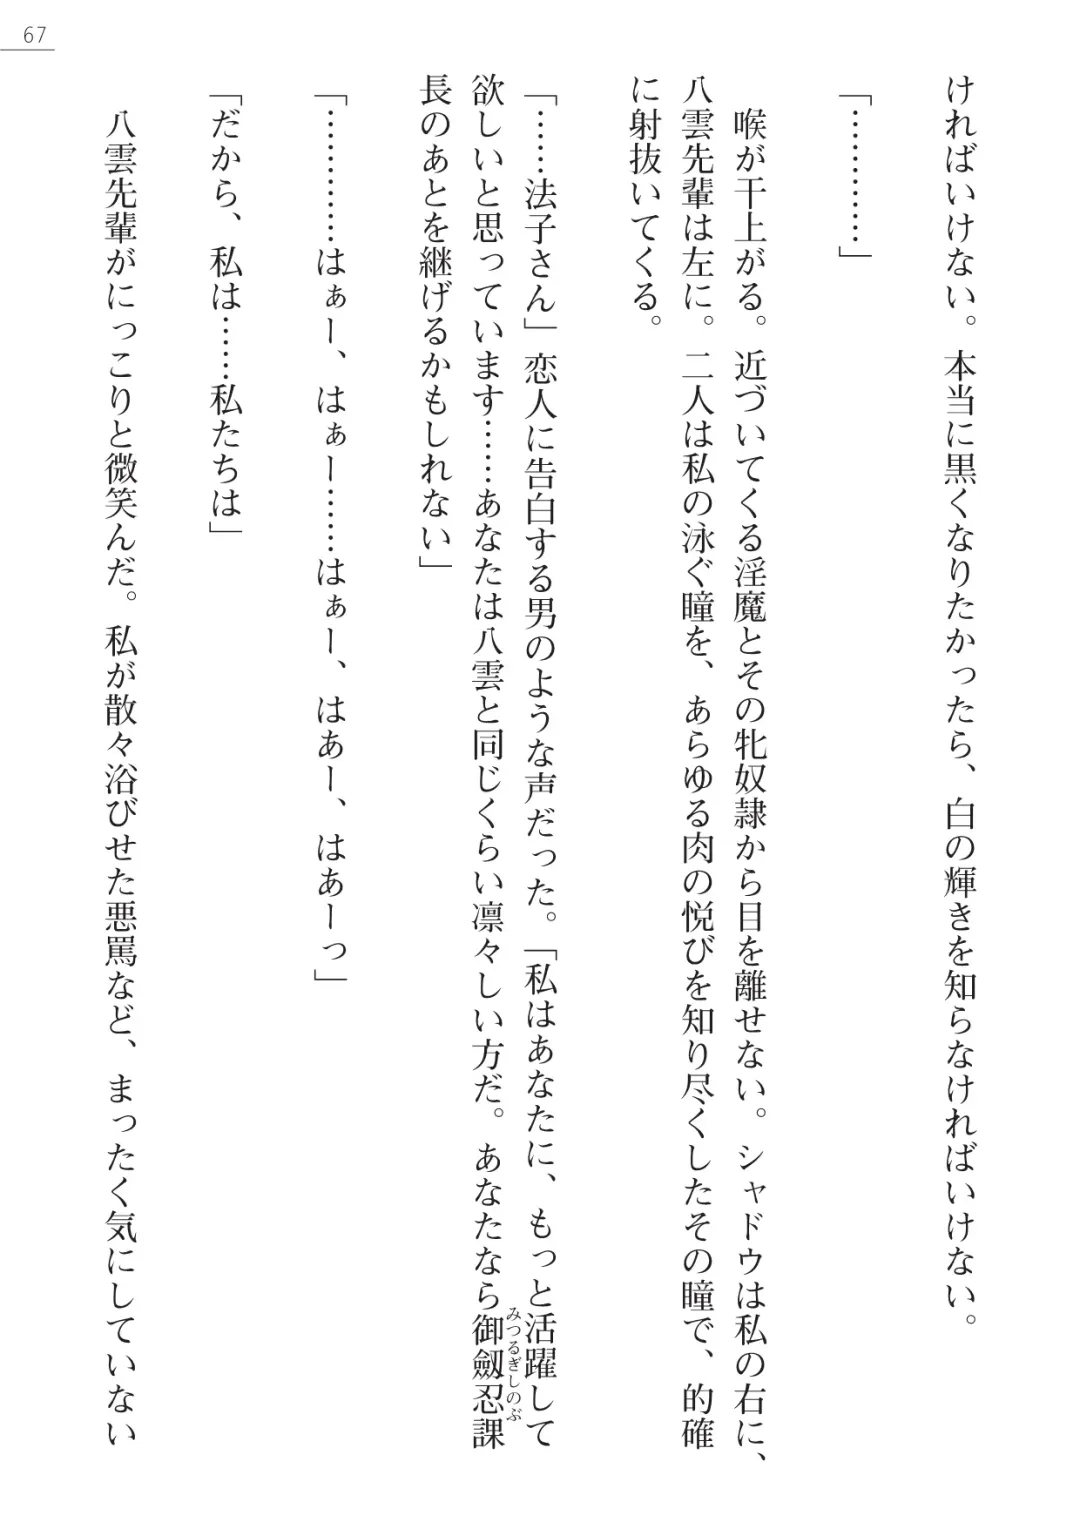 67
ければいけない。本当に黒くなりたかったら、白の輝きを知らなければいけない。
「…………」
喉が干上がる。近づいてくる淫魔とその牝奴隷から目を離せない。シャドウは私の右に、
八雲先輩は左に。二人は私の泳ぐ瞳を、あらゆる肉の悦びを知り尽くしたその瞳で、的確
に射抜いてくる。
「……法子さん」恋人に告白する男のような声だった。「私はあなたに、もっと活躍して
欲しいと思っています……あなたは八雲と同じくらい凛々しい方だ。あなたなら御劔忍課
みつるぎしのぶ
長のあとを継げるかもしれない」
「…………はぁー、はぁー……はぁー、はあー、はあーっ」
「だから、私は……私たちは」
八雲先輩がにっこりと微笑んだ。私が散々浴びせた悪罵など、まったく気にしていない